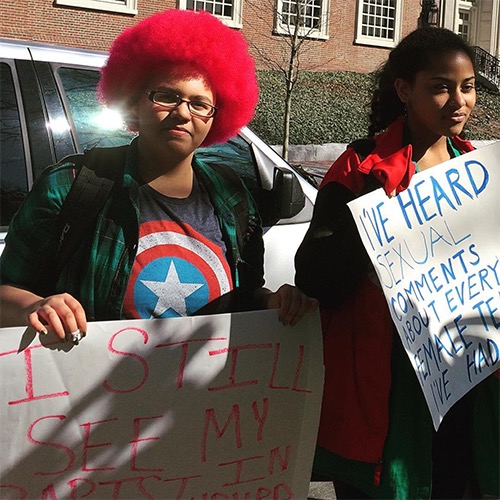 I STILL
SEE MY
IN
I'VE HEARD
SEXUAL
COMMENTS
ABOUT EVERY
FEMALE TE
I'VE HAD